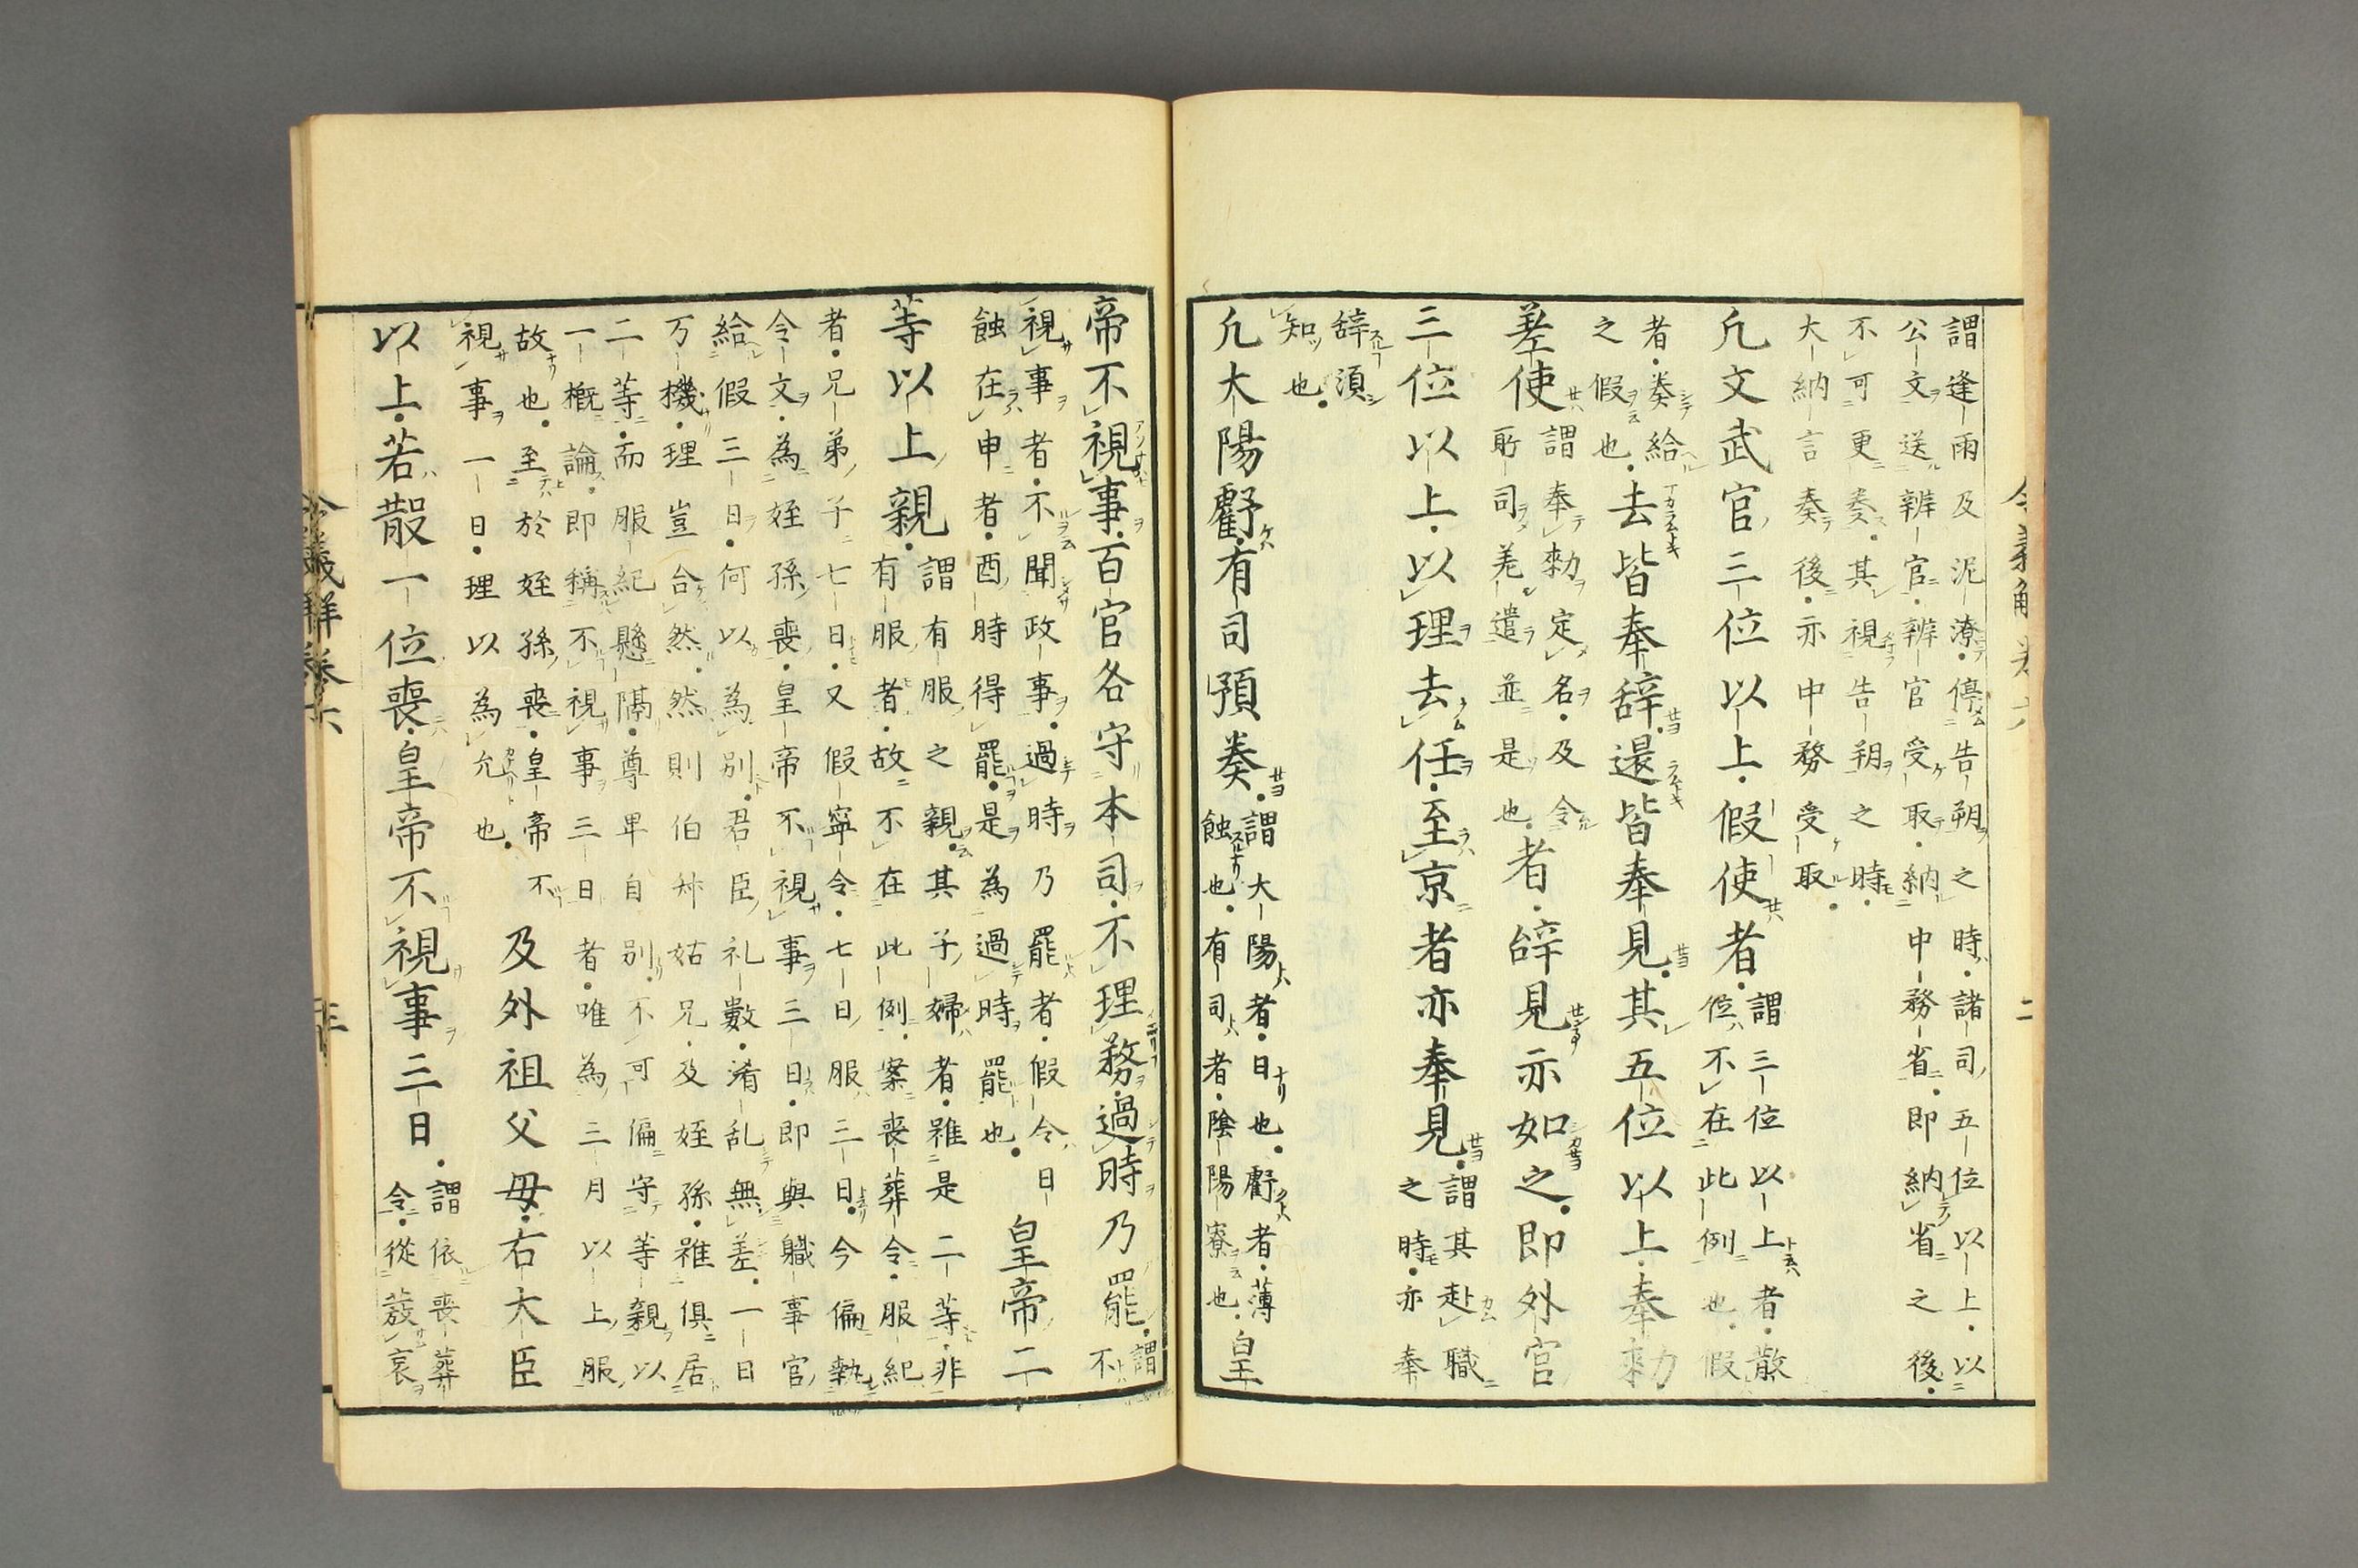 謂逢雨及泥潦停告朔之時諸司五位以上以
公文送辨官辨官受取納中務省即納省之後
不可更奏其視告朔之時
大納言奏後亦中務受取
凢文武官三位以上假使者謂三位以上者散
位不在此例也假
者奏給
之假也去皆奉辞還皆奉見其五位以上奉勅
差使謂奉勅定名及令
所司差遣並是也者辞見亦如之即外官
三位以上以理去任至京者亦奉見謂其赴職
之時亦奉
辞須
知也
凢大陽虧有司預奏謂大陽者日也虧者薄
蝕也有司者陰陽寮也皇
帝不視事百官各守本司不理務過時乃罷謂
不
視事者不聞政事過時乃罷者假令日
蝕在申者酉時得罷是為過時罷也皇帝二
等以上親謂有服之親其子婦者雖是二等非
有服者故不在此例案喪葬令服紀
者兄弟子七日又假寧令七日服三日今偏執
令文為姪孫喪皇帝不視事三日即與職事官
給假三日何以為別君臣礼數淆乱無差一日
万機理豈合然然則伯叔姑兄及姪孫雖俱居
二等而服紀懸隔尊卑自別不可偏守等親以
一概論即稱不視事三日者唯為三月以上服
故也至於姪孫喪皇帝不
視事一日理以為允也及外祖父母右大臣
以上若散一位喪皇帝不視事三日謂依喪葬
令從發哀
令義解卷六